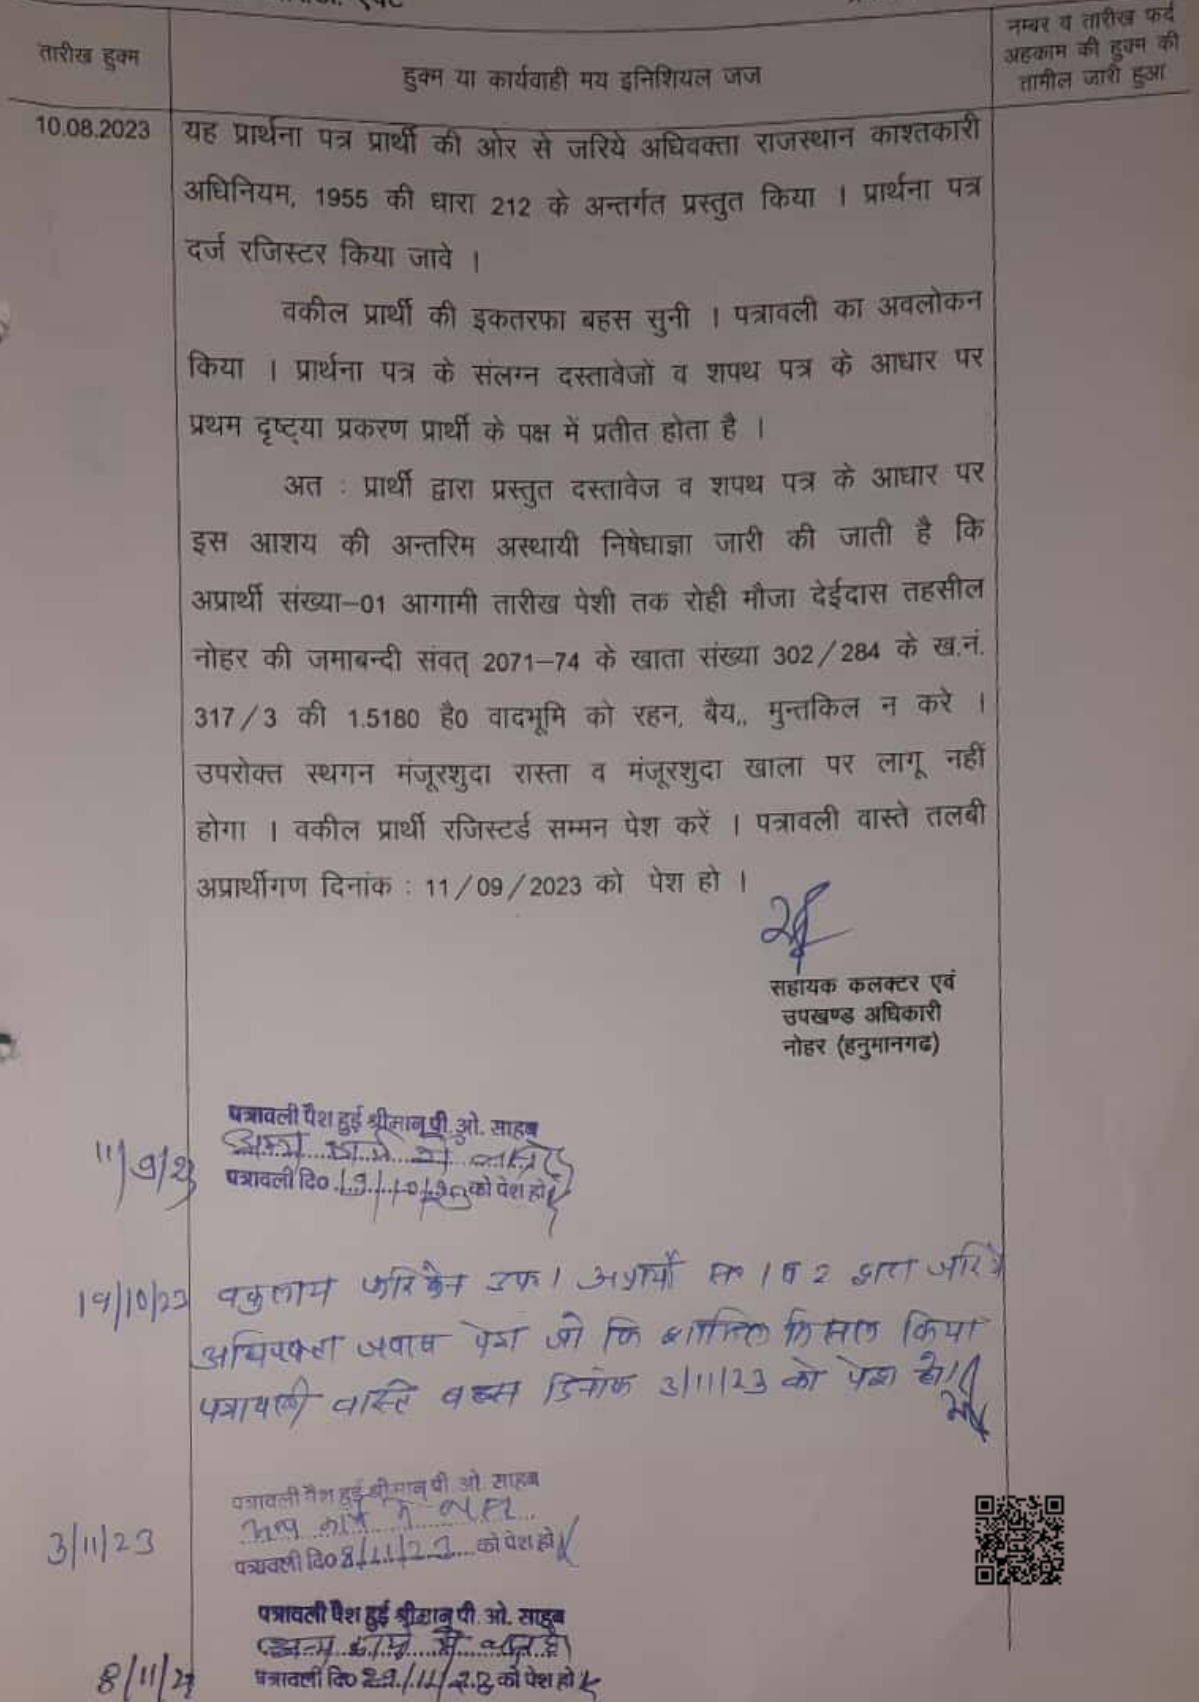 तारीख हुक्म
हुक्म या कार्यवाही मय इनिशियल जज
नम्बर व तारीख फर्द
अहकाम की हुक्म की
तामील जारी हुआ
10.08.2023
यह प्रार्थना पत्र प्रार्थी की ओर से जरिये अधिवक्ता राजस्थान काश्तकारी
अधिनियम, 1955 की धारा 212 के अन्तर्गत प्रस्तुत किया । प्रार्थना पत्र
दर्ज रजिस्टर किया जावे ।
वकील प्रार्थी की इकतरफा बहस सुनी । पत्रावली का अवलोकन
किया । प्रार्थना पत्र के संलग्न दस्तावेजों व शपथ पत्र के आधार पर
प्रथम दृष्ट्या प्रकरण प्रार्थी के पक्ष में प्रतीत होता है ।
अत : प्रार्थी द्वारा प्रस्तुत दस्तावेज व शपथ पत्र के आधार पर
इस आशय की अन्तरिम अस्थायी निषेधाज्ञा जारी की जाती है कि
अप्रार्थी संख्या-01 आगामी तारीख पेशी तक रोही मौजा देईदास तहसील
नोहर की जमाबन्दी संवत् 2071-74 के खाता संख्या 302/284 के ख.नं.
317/3 की 1.5180 है0 वादभूमि को रहन, बैय,, मुन्तकिल न करे ।
उपरोक्त स्थगन मंजूरशुदा रास्ता व मंजूरशुदा खाला पर लागू नहीं
होगा । वकील प्रार्थी रजिस्टर्ड सम्मन पेश करें । पत्रावली वास्ते तलबी
अप्रार्थीगण दिनांक : 11/09/2023 को पेश हो ।
सहायक कलक्टर एवं
उपखण्ड अधिकारी
नोहर (हनुमानगढ)
पत्रावली पेश हुई श्रीमान् पी. ओ. साहब
11/9/23
अन्य कार्य में व्यस्त है
पत्रावली दि0 19/10/23 को पेश हो
19/10/23
वकुलाय फरिकेन उप। अप्रार्थी सं 1 व 2 द्वारा जरिये
अधिवक्ता जवाब पेश जो कि शामिल मिसल किया
पत्रावली वास्ते बहस दिनांक 3/11/23 को पेश हो।
पत्रावली पेश हुई श्रीमान् पी. ओ. साहब
3/11/23
अन्य कार्य में व्यस्त
पत्रावली दि0 8/11/23 को पेश हो
पत्रावली पेश हुई श्रीमान् पी. ओ. साहब
अन्य कार्य में व्यस्त है
8/11/23
पत्रावली दि0 /11/23 को पेश हो